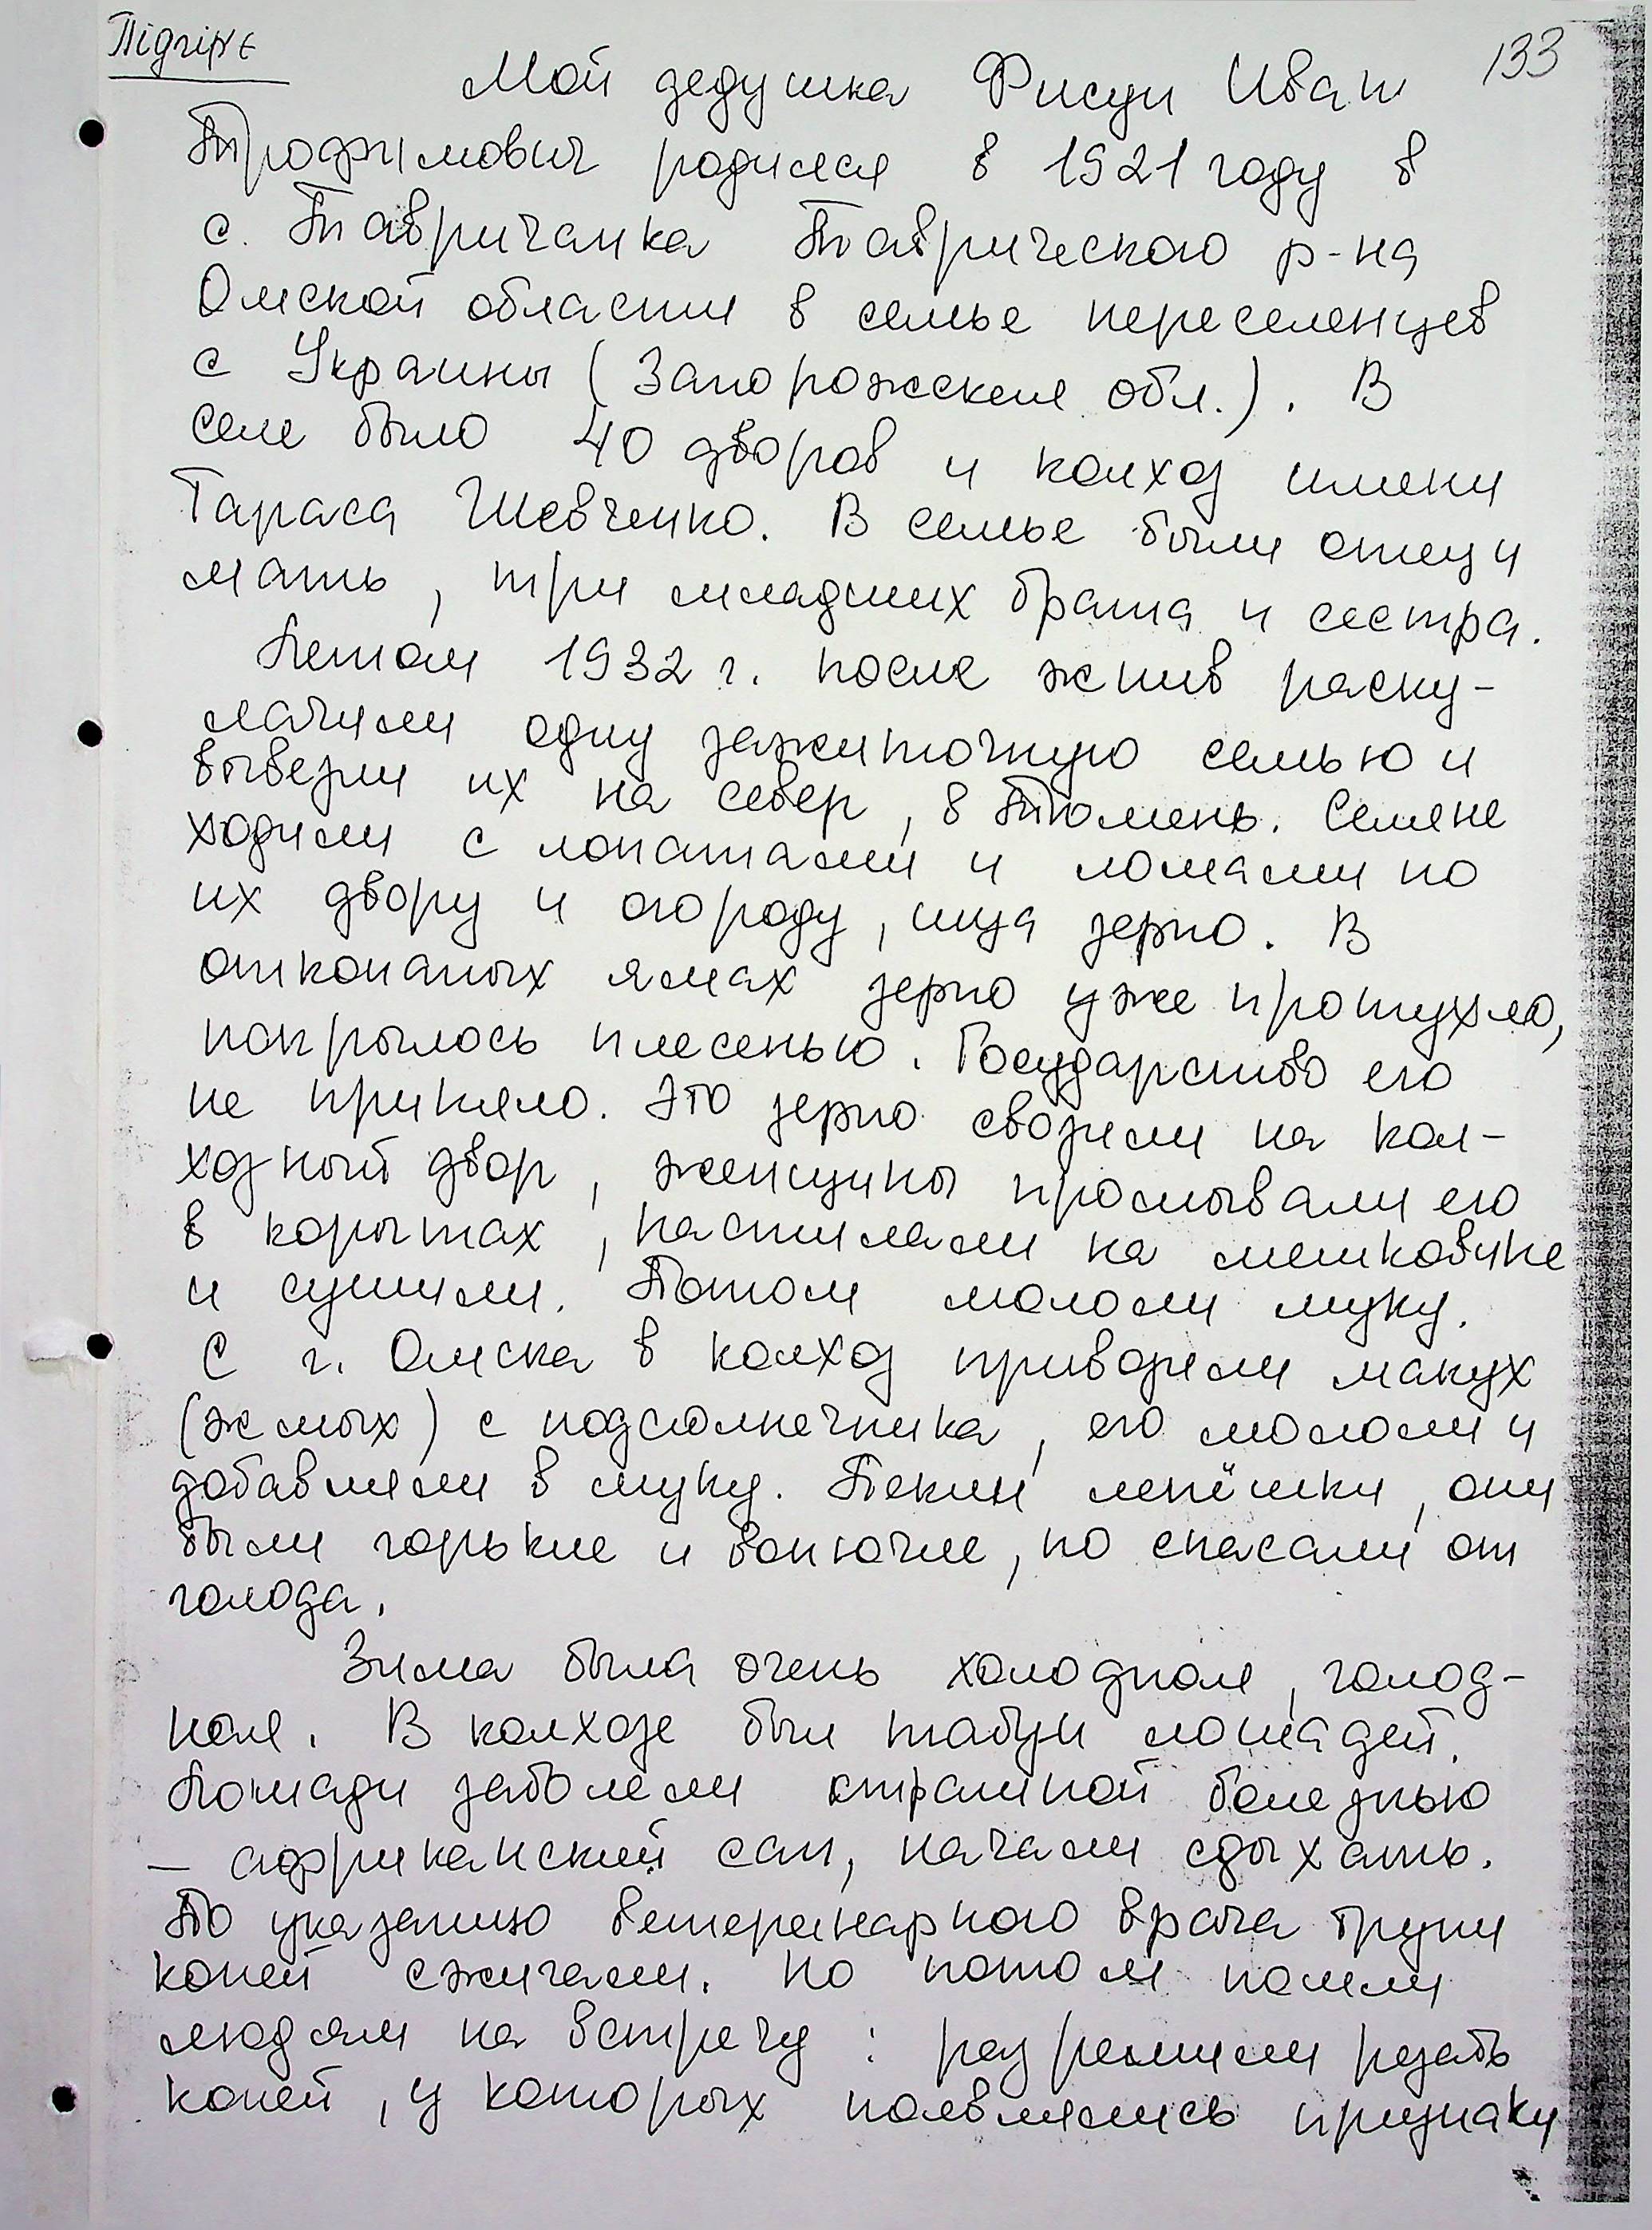 Підгірнє
133
Мой дедушка Фисун Иван
Трофимович родился в 1921 году в
с. Тавричанка Таврического р-на
Омской области в семье переселенцев
с Украины (Запорожская обл.). В
селе было 40 дворов и колхоз имени
Тараса Шевченко. В семье были отец и
мать, три младших брата и сестра.
Летом 1932 г. после жнив раску-
лачили одну зажиточную семью и
вывезли их на север, в Тюмень. Селяне
ходили с лопатами и ломами по
их двору и огороду, ища зерно. В
откопаных ямах зерно уже протухло,
покрылось плесенью. Государство его
не приняло. Это зерно свозили на кол-
хозный двор, женщины промывали его
в корытах, настилали на мешковине
и сушили. Потом мололи муку.
С г. Омска в колхоз привозили макух
(жмых) с подсолнечника, его мололи и
добавляли в муку. Пекли лепёшки, они
были горькие и вонючие, но спасали от
голода.
Зима была очень холодной, голод-
ной. В колхозе был табун лошадей.
Лошади заболели страшной болезнью
– африканский сап, начали сдыхать.
По указанию ветеринарного врача трупы
коней сжигали. Но потом пошли
людям на встречу: разрешили резать
коней, у которых появлялись признаки